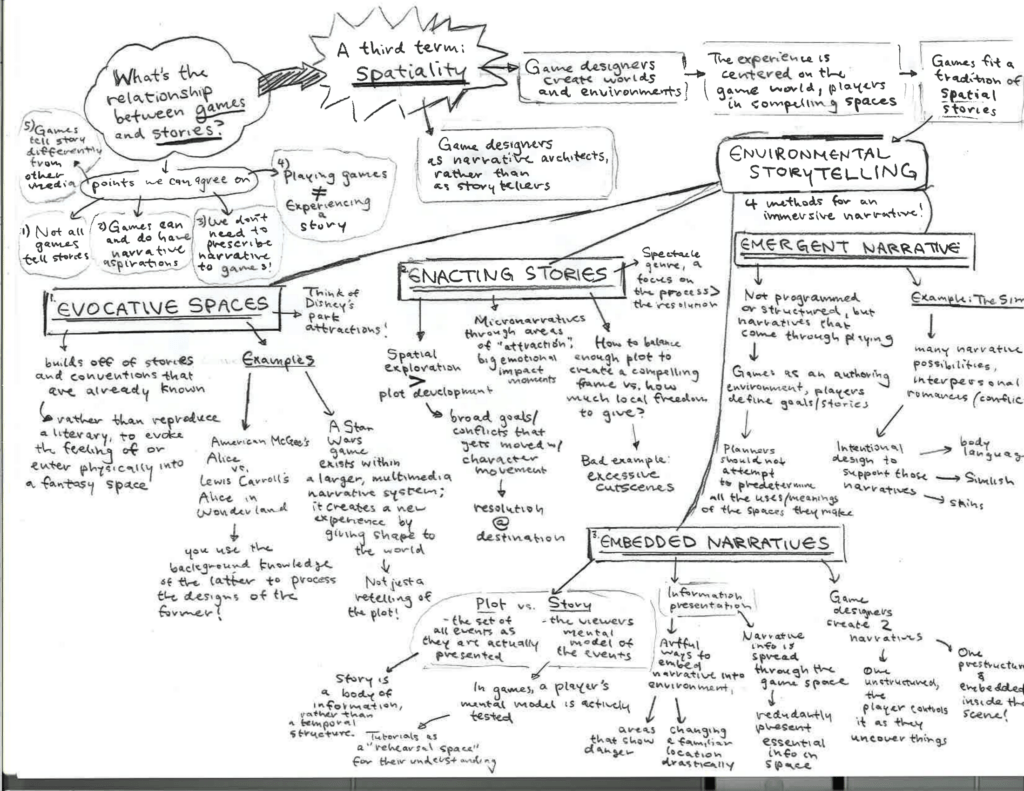 What's the
relationship
between games
and stories?
A third term:
Spatiality
Game designers
create worlds
and environments
The experience is
centered on the
game world, players
in compelling spaces
Games fit a
tradition of
Spatial
stories
Game designers
as narrative architects,
rather than
as storytellers
points we can agree on
1) Not all
games
tell stories
2) Games can
and do have
narrative
aspirations
3) We don't
need to
prescribe
narrative
to games!
4)
Playing games
≠
Experiencing
a
story
5) Games
tell story
differently
from
other
media
ENVIRONMENTAL
STORYTELLING
4 methods for an
immersive narrative!
1. EVOCATIVE SPACES
Think of
Disney's
park
attractions!
builds off of stories
and conventions that
are already known
rather than reproduce
a literary, to evoke
the feeling of or
enter physically into
a fantasy space
Examples
American McGee's
Alice
vs.
Lewis Carroll's
Alice in
Wonderland
you use the
background knowledge
of the latter to process
the designs of the
former!
A Star
Wars
game
exists within
a larger, multimedia
narrative system;
it creates a new
experience by
giving shape to
the world
Not just a
retelling of
the plot!
2. ENACTING STORIES
Spectacle
genre, a
focus on
the process >
the resolution
Spatial
exploration
>
plot development
Micronarratives
through areas
of "attraction";
big emotional
impact
moments
broad goals/
conflicts that
gets moved w/
character
movement
resolution
@
destination
How to balance
enough plot to
create a compelling
frame vs. how
much local freedom
to give?
Bad example:
excessive
cutscenes
3. EMBEDDED NARRATIVES
Plot vs. Story
- the set of
all events as
they are actually
presented
- the viewers
mental
model of
the events
Story is
a body of
information,
rather than
a temporal
structure.
In games, a player's
mental model is actively
tested
Tutorials as
a "rehearsal space"
for their understanding
Information
presentation
Artful
ways to
embed
narrative into
environment,
areas
that show
danger
changing
a familiar
location
drastically
Narrative
info is
spread
through the
game space
redundantly
present
essential
info in
space
Game
designers
create 2
narratives
One
unstructured,
the
player controls
it as they
uncover things
One
prestructure
&
embedded
inside the
scene!
EMERGENT NARRATIVE
Not programmed
or structured, but
narratives that
come through playing
Games as an authoring
environment, players
define goals/stories
Planners
should not
attempt
to predetermine
all the uses/meanings
of the spaces they make
Example: The Sim
many narrative
possibilities,
interpersonal
romances/conflic
Intentional
design to
support those
narratives
body
language
Simlish
skins